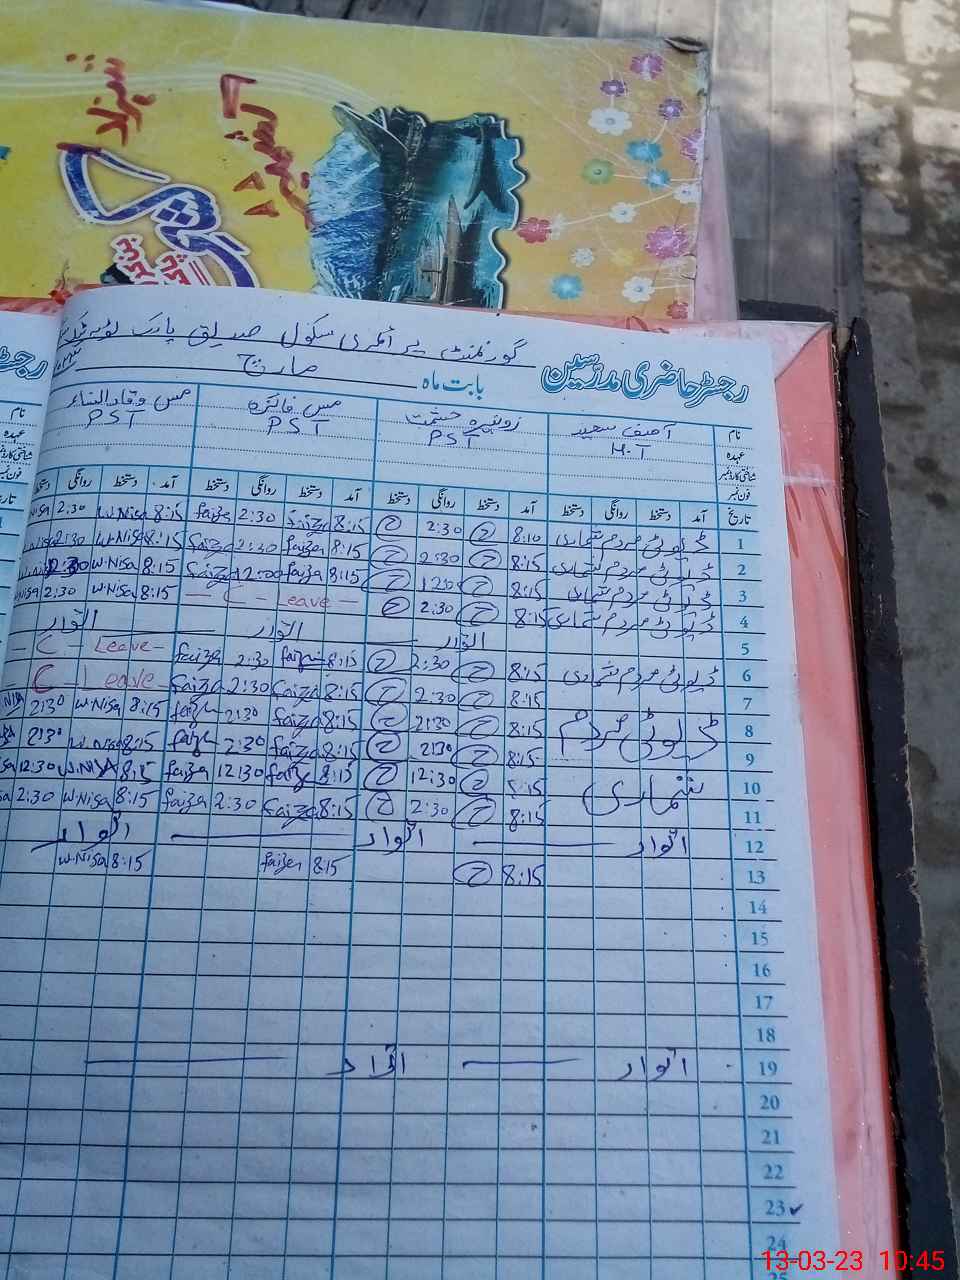 شہزاد
گورنمنٹ پرائمری سکول صدیق پارک
رجسٹر حاضری مدرسین
بابت ماہ مارچ
نام آصف سعید زونیرہ حشمت مس فائزہ مس وقار النساء
عہدہ H.T PST PST PST
شناختی کارڈ نمبر
فون نمبر
تاریخ آمد دستخط روانگی دستخط آمد دستخط روانگی دستخط آمد دستخط روانگی دستخط آمد دستخط روانگی دستخط
1 ڈیوٹی مردم شماری 8:10 2:30 8:15 faiza 2:30 faiza 8:15 W.Nisa 2:30 Nisa
2 ڈیوٹی مردم شماری 8:15 2:30 8:15 faiza 2:30 faiza 8:15 W.Nisa 2:30
3 ڈیوٹی مردم شماری 8:15 8:15 faiza 12:00 faiza 8:15 W.Nisa
4 ڈیوٹی مردم شماری 8:15 2:30 — C - Leave — 8:15 W.Nisa 2:30
5 اتوار اتوار اتوار
6 ڈیوٹی مردم شماری 8:15 2:30 8:15 faiza 2:30 faiza - C - Leave -
7 8:15 2:30 8:15 faiza 2:30 faiza C Leave
8 ڈیوٹی مردم 8:15 2:30 8:15 faiza 2:30 faiza 8:15 W.Nisa 2:30
9 8:15 2:30 8:15 faiza 2:30 faiza 8:15 W.Nisa 2:30
10 شماری 8:15 12:30 8:15 faiza 12:30 faiza 8:15 W.Nisa 12:30
11 8:15 2:30 8:15 faiza 2:30 faiza 8:15 W.Nisa 2:30
12 اتوار اتوار اتوار
13 8:15 8:15 faiza 8:15 W.Nisa
14
15
16
17
18
19 اتوار اتوار
20
21
22
23
24
25
13-03-23 10:45